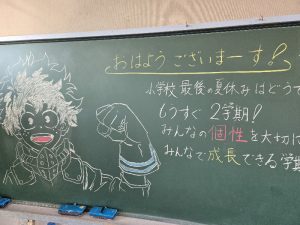 おはようございまーす!
小学校最後の夏休みはどうで
もうすぐ2学期!
みんなの個性を大切に
みんなで成長できる学期